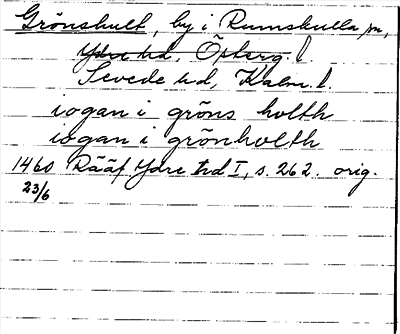 Grönshult, by i Rumskulla sn,
Ydre hd, Österg. l.
Sevede hd, Kalm. l.
iogan i gröns hulth
iogan i grönhulth
1460 Rääf Ydre hd I, s. 262. orig.
23/6